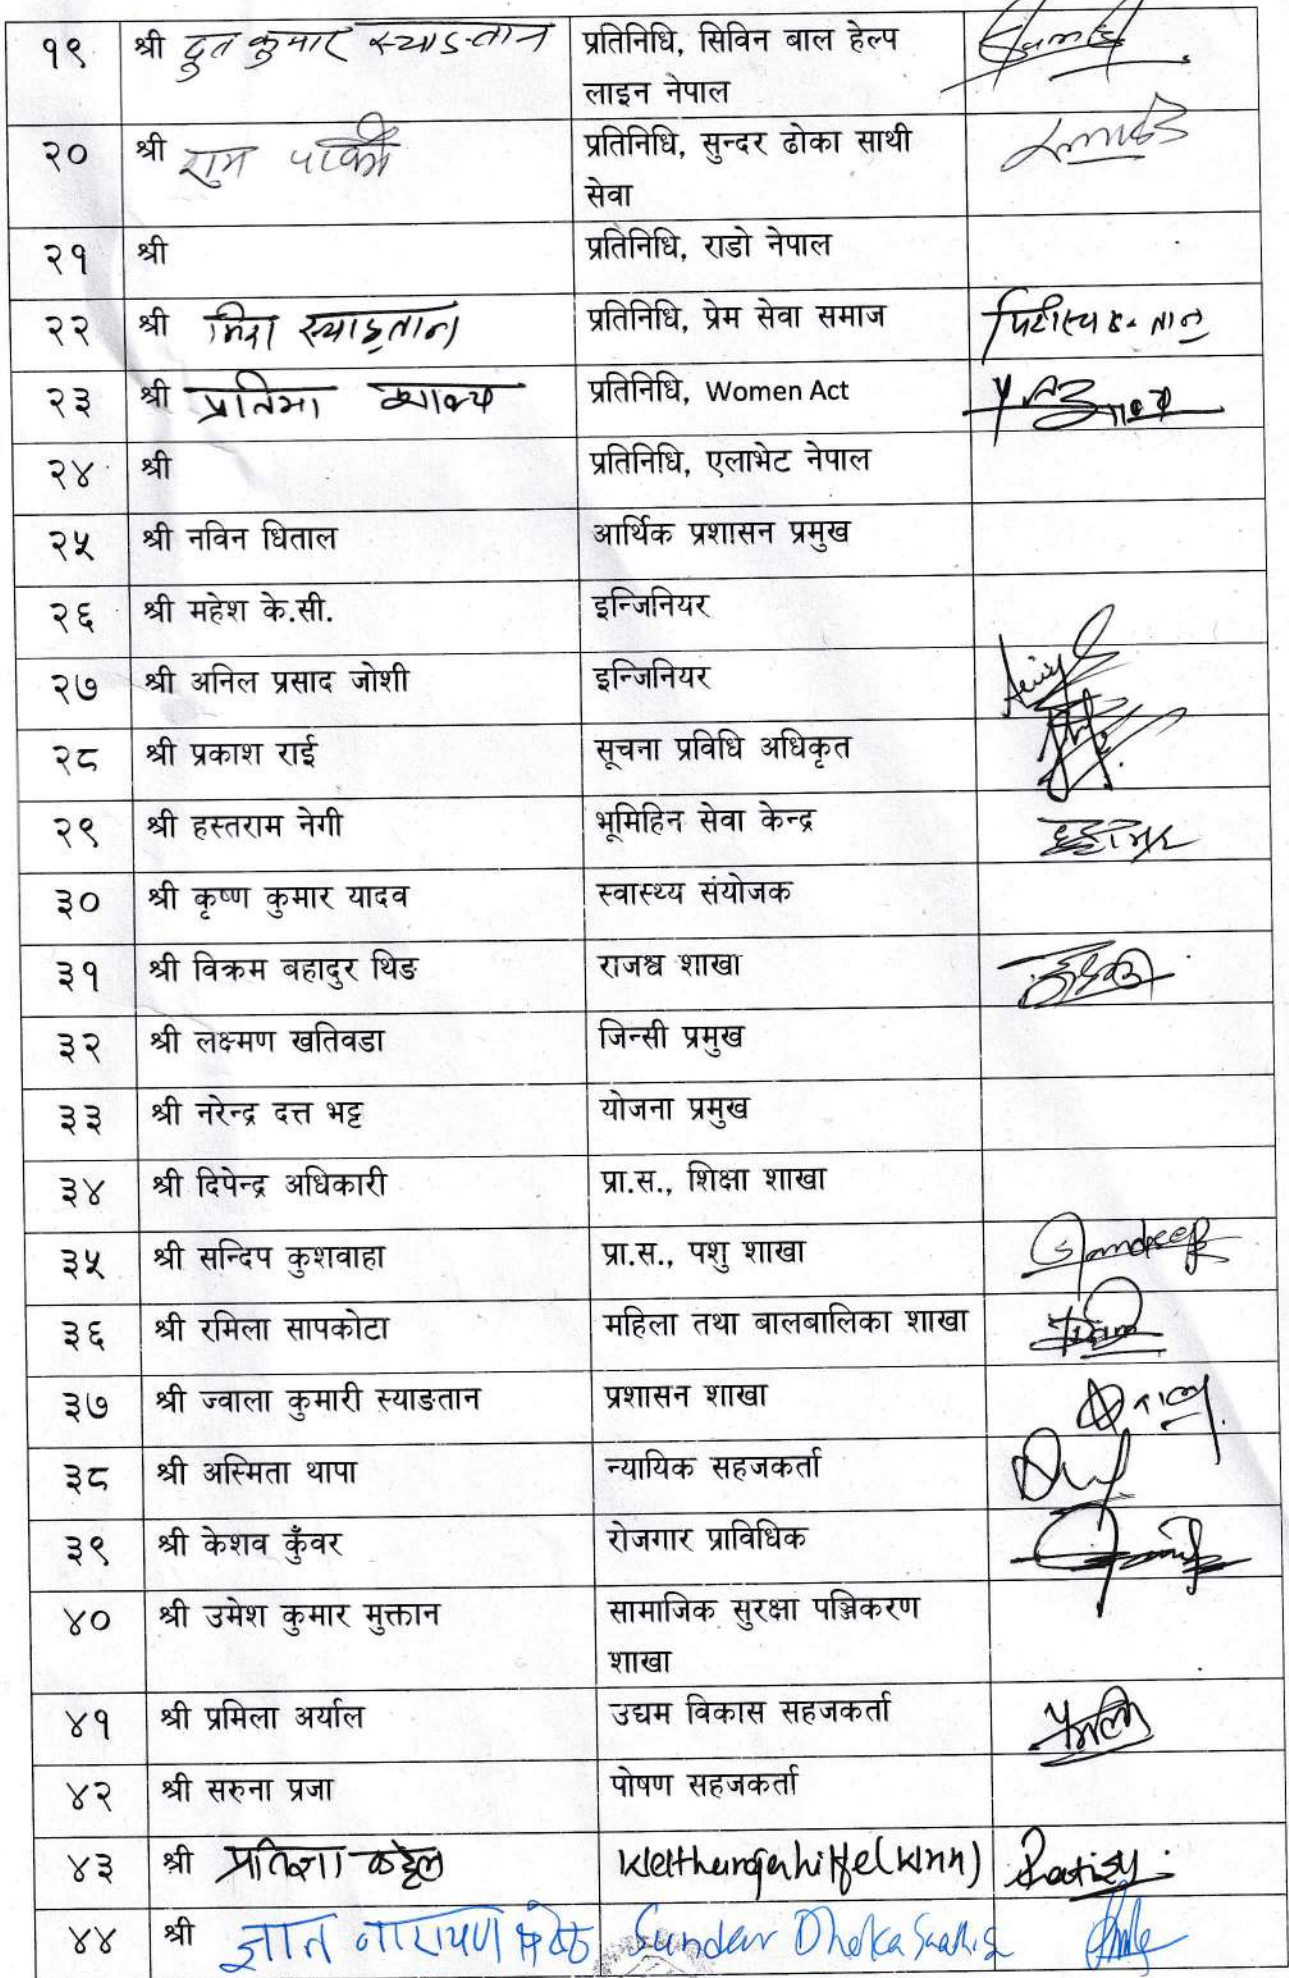 १९ श्री द्रुत कुमार स्याङतान प्रतिनिधि, सिविन बाल हेल्प
लाइन नेपाल
२० श्री राम कार्की प्रतिनिधि, सुन्दर ढोका साथी
सेवा
२१ श्री प्रतिनिधि, राडो नेपाल
२२ श्री स्याङ्तान प्रतिनिधि, प्रेम सेवा समाज
२३ श्री प्रतिमा शाक्य प्रतिनिधि, Women Act
२४ श्री प्रतिनिधि, एलाभेट नेपाल
२५ श्री नविन धिताल आर्थिक प्रशासन प्रमुख
२६ श्री महेश के.सी. इन्जिनियर
२७ श्री अनिल प्रसाद जोशी इन्जिनियर
२८ श्री प्रकाश राई सूचना प्रविधि अधिकृत
२९ श्री हस्तराम नेगी भूमिहिन सेवा केन्द्र
३० श्री कृष्ण कुमार यादव स्वास्थ्य संयोजक
३१ श्री विक्रम बहादुर थिङ राजश्व शाखा
३२ श्री लक्ष्मण खतिवडा जिन्सी प्रमुख
३३ श्री नरेन्द्र दत्त भट्ट योजना प्रमुख
३४ श्री दिपेन्द्र अधिकारी प्रा.स., शिक्षा शाखा
३५ श्री सन्दिप कुशवाहा प्रा.स., पशु शाखा Sandeep
३६ श्री रमिला सापकोटा महिला तथा बालबालिका शाखा
३७ श्री ज्वाला कुमारी स्याङतान प्रशासन शाखा
३८ श्री अस्मिता थापा न्यायिक सहजकर्ता
३९ श्री केशव कुँवर रोजगार प्राविधिक
४० श्री उमेश कुमार मुक्तान सामाजिक सुरक्षा पञ्जिकरण
शाखा
४१ श्री प्रमिला अर्याल उद्यम विकास सहजकर्ता
४२ श्री सरुना प्रजा पोषण सहजकर्ता
४३ श्री प्रतिज्ञा कट्टेल
४४ श्री ज्ञान नारायण श्रेष्ठ Sundar Dhoka Saathi